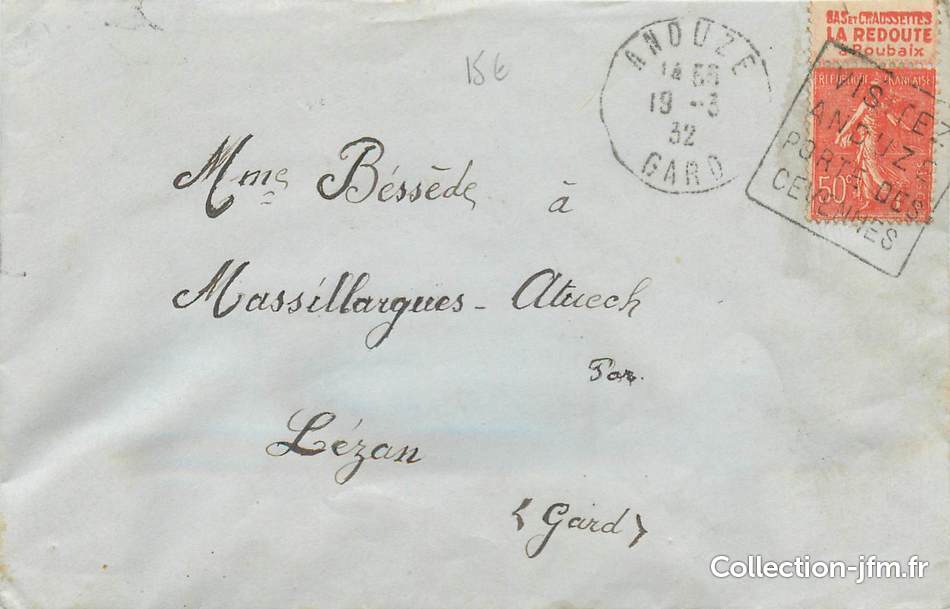 BAS ET CHAUSSETTES
LA REDOUTE
à Roubaix
REPUBLIQUE FRANÇAISE
50 c
ANDUZE
14 55
19 - 3
32
GARD
VISITEZ
ANDUZE
PORTE DES
CEVENNES
15 €
Mme Béssède à
Massillargues - Atuech
Par
Lézan
(Gard)
Collection-jfm.fr